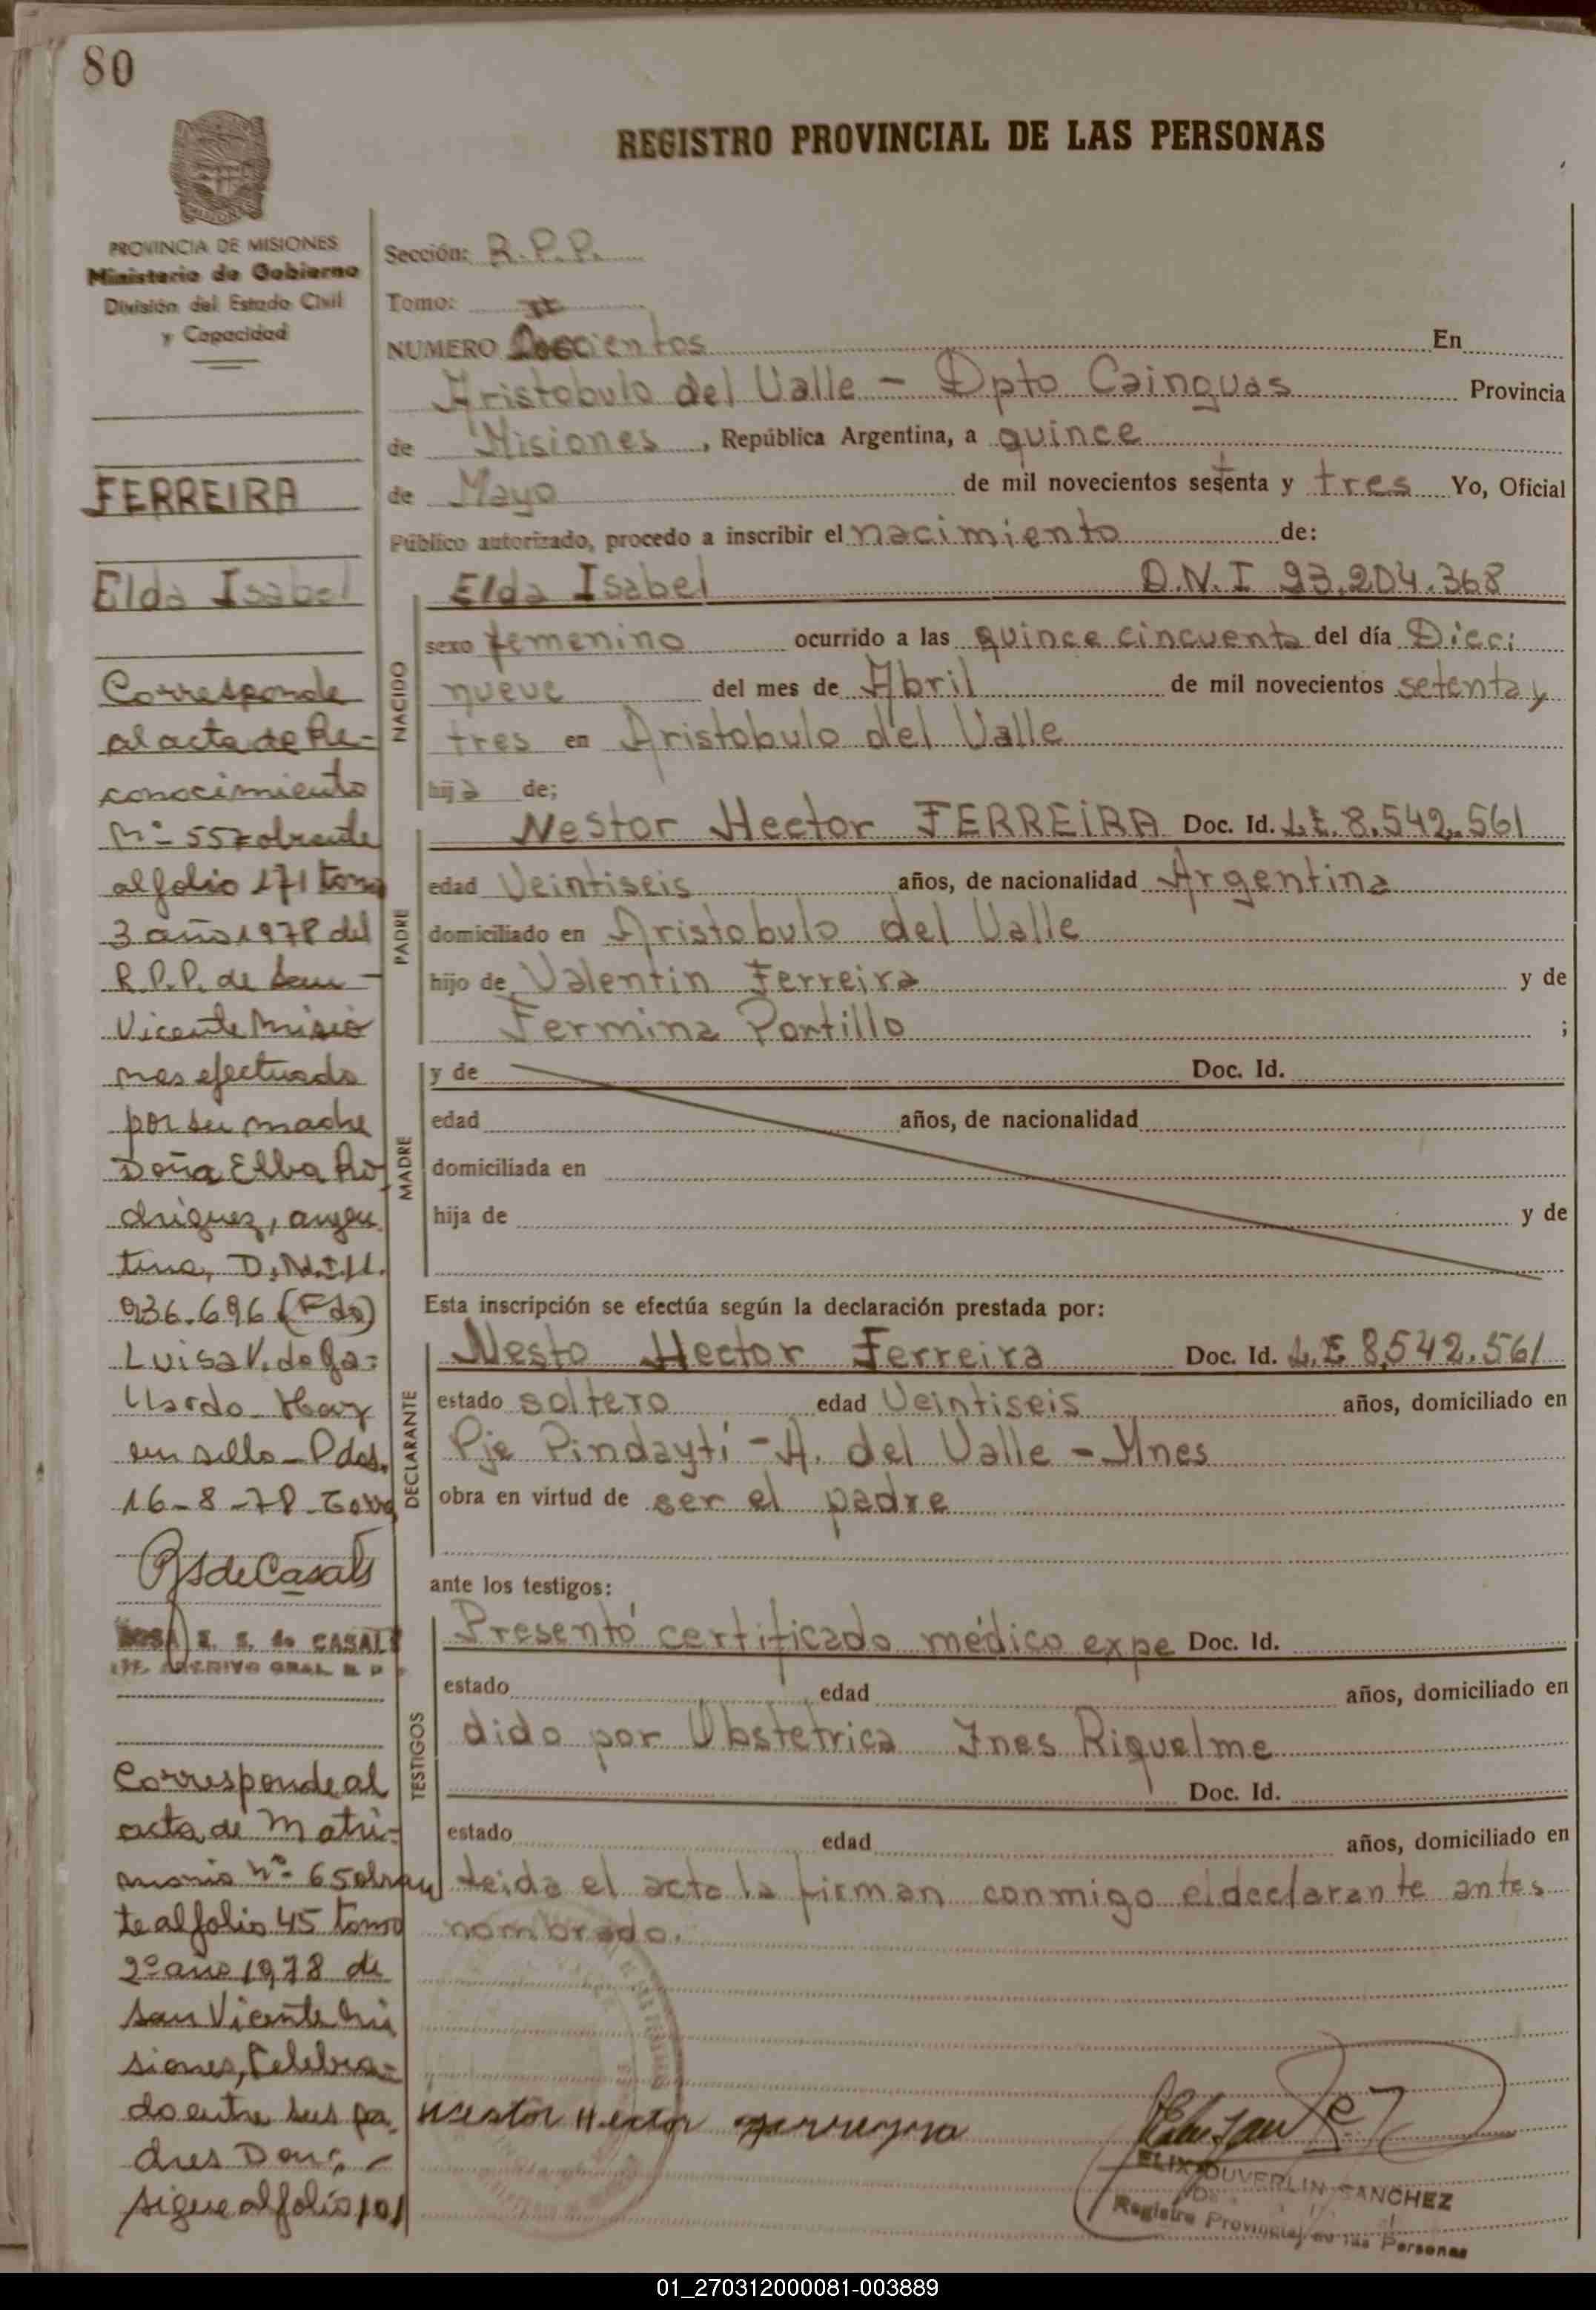 80
REGISTRO PROVINCIAL DE LAS PERSONAS
PROVINCIA DE MISIONES
Ministerio de Gobierno
División del Estado Civil
y Capacidad
FERREIRA
Elda Isabel
Corresponde
al acta de Re-
conocimiento
Nº 557 obrante
al folio 171 tomo
3 año 1978 del
R.P.P. de San
Vicente Misio
nes efectuado
por su madre
Doña Elba Ro
driguez, argen
tina, D.N.I. 11.
936.696 (Fdo)
Luisa V. de Ga-
llardo - Hay
un sello - Pdas.
16-8-78
RSdeCasals
ROSA E. S. de CASALS
ARCHIVO GRAL. R. P. P.
Corresponde al
acta de Matri-
monio Nº 65 obran
te al folio 45 tomo
2º año 1978 de
San Vicente Mi
siones, Celebra-
do entre sus pa
dres Don; -
sigue al folio 101
Sección: R.P.P.
Tomo: II
NUMERO Doscientos En
Aristobulo del Valle - Dpto Cainguas Provincia
de Misiones, República Argentina, a quince
de Mayo de mil novecientos setenta y tres Yo, Oficial
Público autorizado, procedo a inscribir el nacimiento de:
NACIDO
Elda Isabel D.N.I 93.204.368
sexo femenino ocurrido a las quince cincuenta del día Dieci
nueve del mes de Abril de mil novecientos setenta y
tres en Aristobulo del Valle
hija de;
PADRE
Nestor Hector FERREIRA Doc. Id. L.E. 8.542.561
edad Veintiseis años, de nacionalidad Argentina
domiciliado en Aristobulo del Valle
hijo de Valentin Ferreira y de
Fermina Portillo ;
MADRE
y de Doc. Id.
edad años, de nacionalidad
domiciliada en
hija de y de
Esta inscripción se efectúa según la declaración prestada por:
DECLARANTE
Nesto Hector Ferreira Doc. Id. L.E 8,542.561
estado soltero edad Veintiseis años, domiciliado en
Pje Pindaytí - A. del Valle - Mnes
obra en virtud de ser el padre
ante los testigos:
TESTIGOS
Presentó certificado médico expe Doc. Id.
estado edad años, domiciliado en
dido por Obstétrica Ines Riquelme
Doc. Id.
estado edad años, domiciliado en
leida el acta la firman conmigo el declarante antes
nombrado.
Nestor Hector Ferreyra
ELIX DUVERLIN SANCHEZ
Registro Provincial de las Personas
01_270312000081-003889